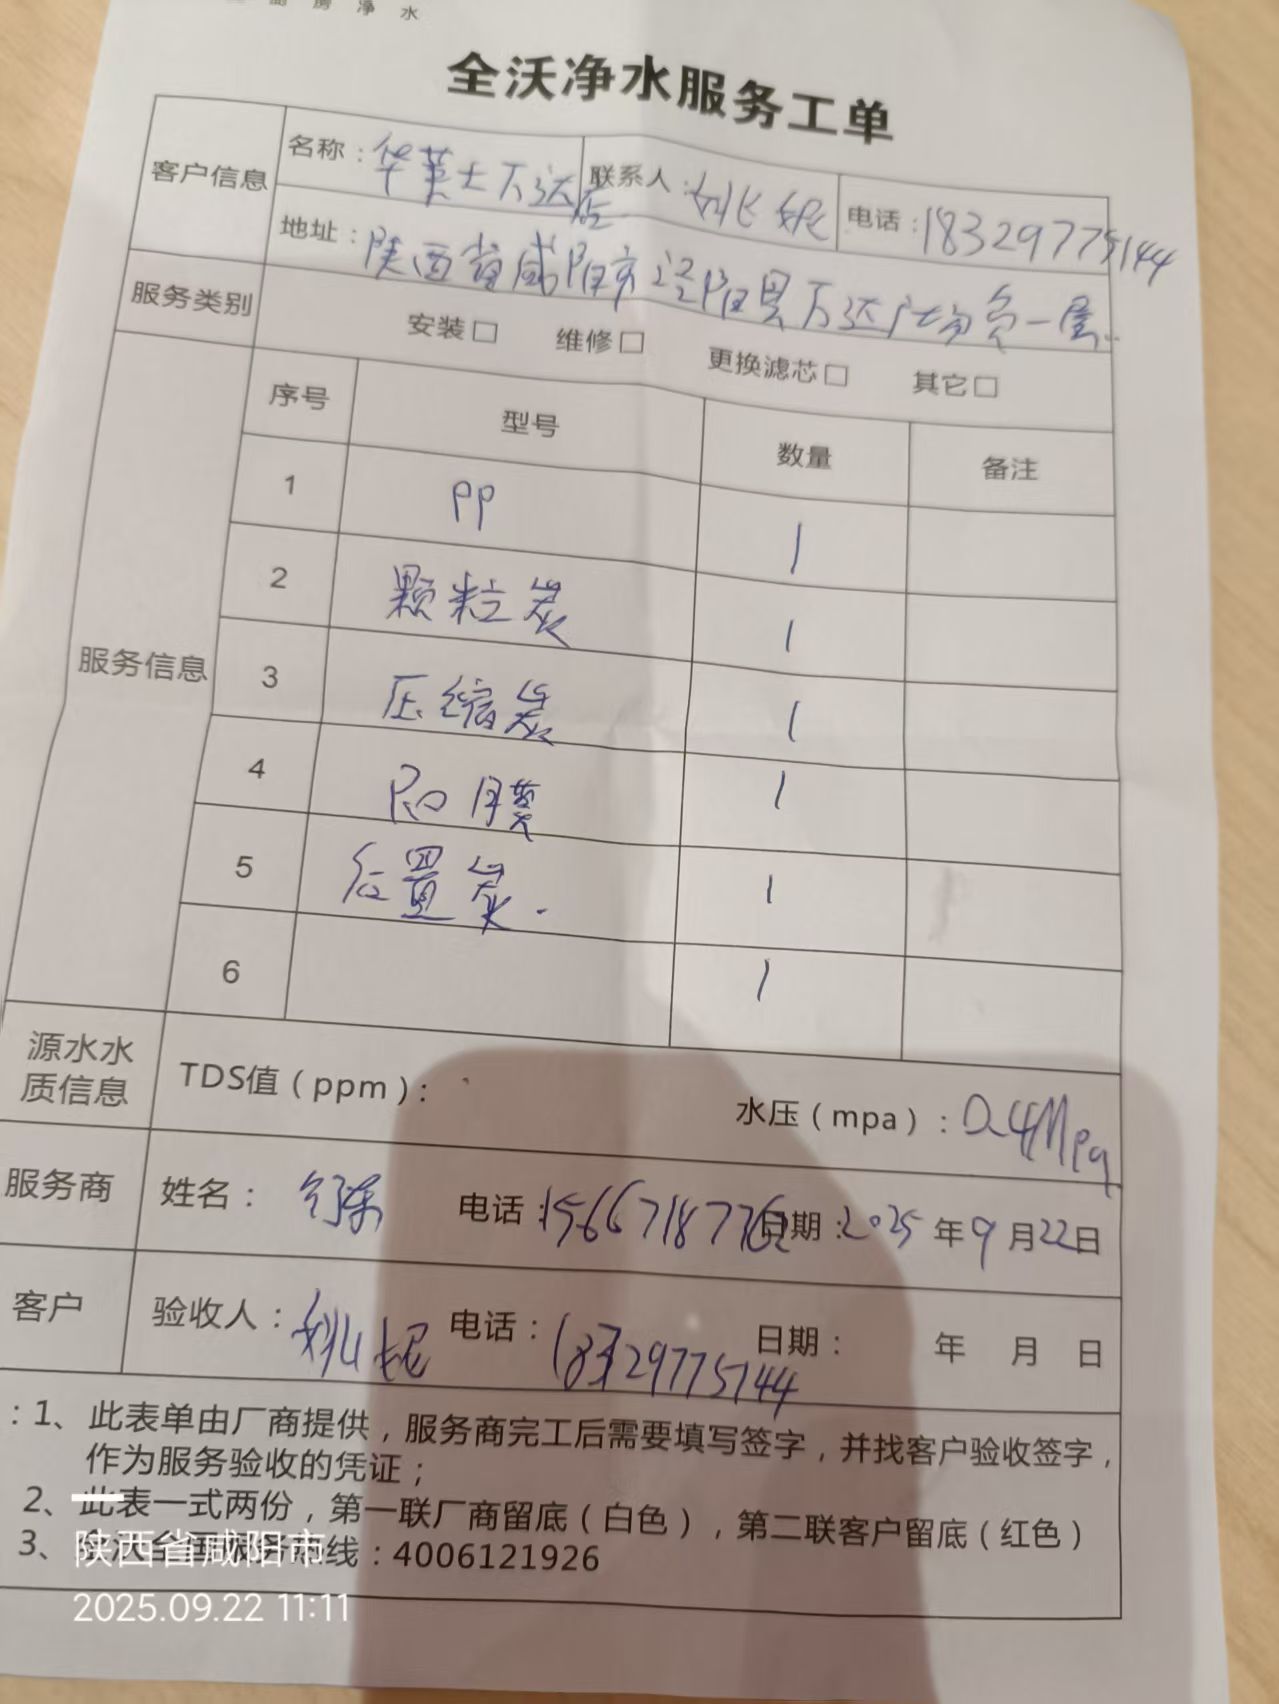 厨房净水
全沃净水服务工单
客户信息 名称：华莱士万达店 联系人： 妮 电话：18329775144
地址：陕西省咸阳市泾阳县万达广场负一层
服务类别 安装□ 维修□ 更换滤芯□ 其它□
服务信息 序号 型号 数量 备注
1 PP 1
2 颗粒炭 1
3 压缩炭 1
4 RO膜 1
5 后置炭. 1
6 1
源水水质信息 TDS值（ppm）： 水压（mpa）：0.4Mpa
服务商 姓名： 电话：15667187762 日期：2025年9月22日
客户 验收人： 妮 电话：18329775144 日期： 年 月 日
：1、此表单由厂商提供，服务商完工后需要填写签字，并找客户验收签字，
作为服务验收的凭证；
2、此表一式两份，第一联厂商留底（白色），第二联客户留底（红色）
3、 线：4006121926
陕西省咸阳市
2025.09.22 11:11